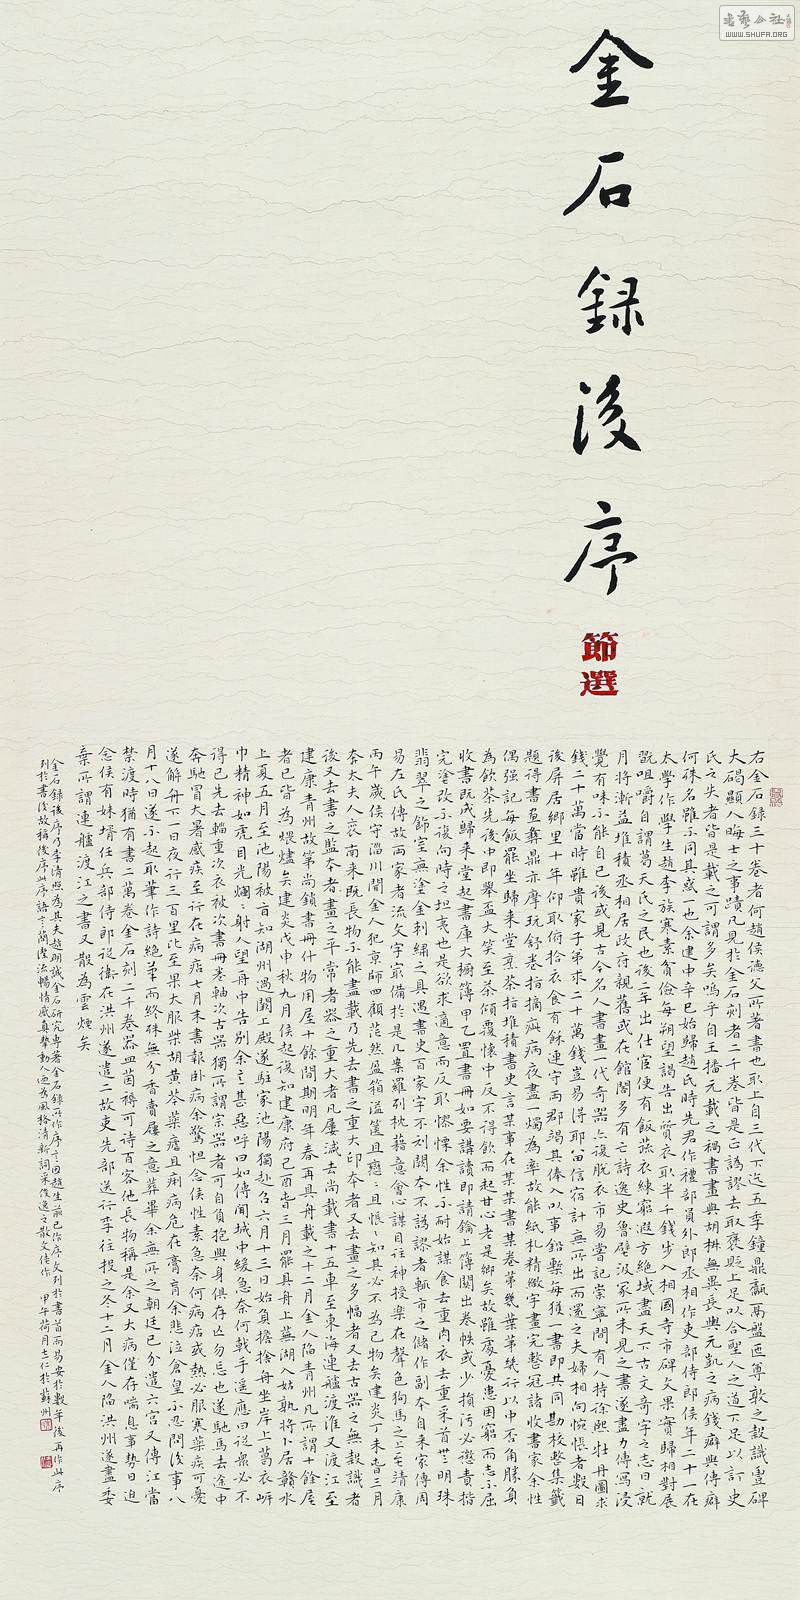 金石録後序
節選
右金石録三十卷者何趙侯德父所著書也取上自三代下迄五季鐘鼎甗鬲盤匜尊敦之款識豐碑
大碣顯人晦士之事蹟凡見於金石刻者二千卷皆是正譌謬去取褒貶上足以合聖人之道下足以訂史
氏之失者皆是載之可謂多矣嗚乎自王播元載之禍書畫與胡椒無異長輿元凱之病錢癖與傳癖
何殊名雖不同其惑一也余建中辛巳始歸趙氏時先君作禮部員外郎丞相作吏部侍郎侯年二十一在
太學作學生趙李族寒素貧儉每朔望謁告出質衣取半千錢步入相國寺市碑文果實歸相對展
翫咀嚼自謂葛天氏之民也後二年出仕宦便有飯蔬衣練窮遐方絕域盡天下古文奇字之志日就
月將漸益堆積丞相居政府親舊或在館閣多有亡詩逸史魯壁汲冢所未見之書遂盡力傳寫浸
覺有味不能自已後或見古今名人書畫一代奇器亦復脫衣市易嘗記崇寧間有人持徐熙牡丹圖求
錢二十萬當時雖貴家子弟求二十萬錢豈易得耶留信宿計無所出而還之夫婦相向惋悵者數日
後屏居鄉里十年仰取俯拾衣食有餘連守兩郡竭其俸入以事鉛槧每獲一書即共同勘校整集籤
題得書畫彝鼎亦摩玩舒卷指摘疵病夜盡一燭為率故能紙札精緻字畫完整冠諸收書家余性
偶強記每飯罷坐歸来堂烹茶指堆積書史言某事在某某書某卷第幾葉第幾行以中否角勝負
為飲茶先後中即舉盃大笑至茶傾覆懷中反不得飲而起甘心老是鄉矣故雖處憂患困窮而志不屈
收書既成歸来堂起書庫大櫥簿甲乙置書冊如要講讀即請鑰上簿關出卷帙或少損污必懲責揩
完塗改不復向時之坦夷也是欲求適意而反取憀慄余性不耐始謀食去重肉衣去重采首無明珠
翡翠之飾室無塗金刺繡之具遇書史百家字不刓闕本不譌謬者輒市之儲作副本自来家傳周
易左氏傳故兩家者流文字最備於是几案羅列枕藉意會心謀目往神授樂在聲色狗馬之上至靖康
丙午歲侯守淄川聞金人犯京師四顧茫然盈箱溢篋且戀戀且悵悵知其必不為己物矣建炎丁未春三月
奔太夫人喪南来既長物不能盡載乃先去書之重大印本者又去畫之多幅者又去古器之無款識者
後又去書之監本者畫之平常者器之重大者凡屢減去尚載書十五車至東海連艫渡淮又渡江至
建康青州故第尚鎖書冊什物用屋十餘間期明年春再具舟載之十二月金人陷青州凡所謂十餘屋
者已皆為煨燼矣建炎戊申秋九月侯起復知建康府己酉春三月罷具舟上蕪湖入姑孰將卜居贛水
上夏五月至池陽被旨知湖州過闕上殿遂駐家池陽獨赴召六月十三日始負擔捨舟坐岸上葛衣岸
巾精神如虎目光爛爛射人望舟中告別余意甚惡呼曰如傳聞城中緩急奈何戟手遙應曰從眾必不
得已先去輜重次衣被次書冊卷軸次古器獨所謂宗器者可自負抱與身俱存亡勿忘也遂馳馬去途中
奔馳冒大暑感疾至行在病痁七月末書報臥病余驚怛念侯性素急奈何病痁或熱必服寒藥疾可憂
遂解舟下一日夜行三百里比至果大服柴胡黃芩藥瘧且痢病危在膏肓余悲泣倉皇不忍問後事八
月十八日遂不起取筆作詩絕筆而終殊無分香賣屨之意葬畢余無所之朝廷已分遣六宮又傳江當
禁渡時猶有書二萬卷金石刻二千卷器皿茵褥可待百客他長物稱是余又大病僅存喘息事勢日迫
念侯有妹壻任兵部侍郎從衛在洪州遂遣二故吏先部送行李往投之冬十二月金人陷洪州遂盡委
棄所謂連艫渡江之書又散為雲煙矣
金石録後序乃李清照為其夫趙明誠金石研究專著金石録所作序言因趙生前已作序文列於書首而易安於數年後再作此序
列於書後故稱後序此序語言簡潔流暢情感真摯動人
風格清新詞采俊逸之散文佳作 甲午荷月志仁於蘇州
書藝公社
WWW.SHUFA.ORG